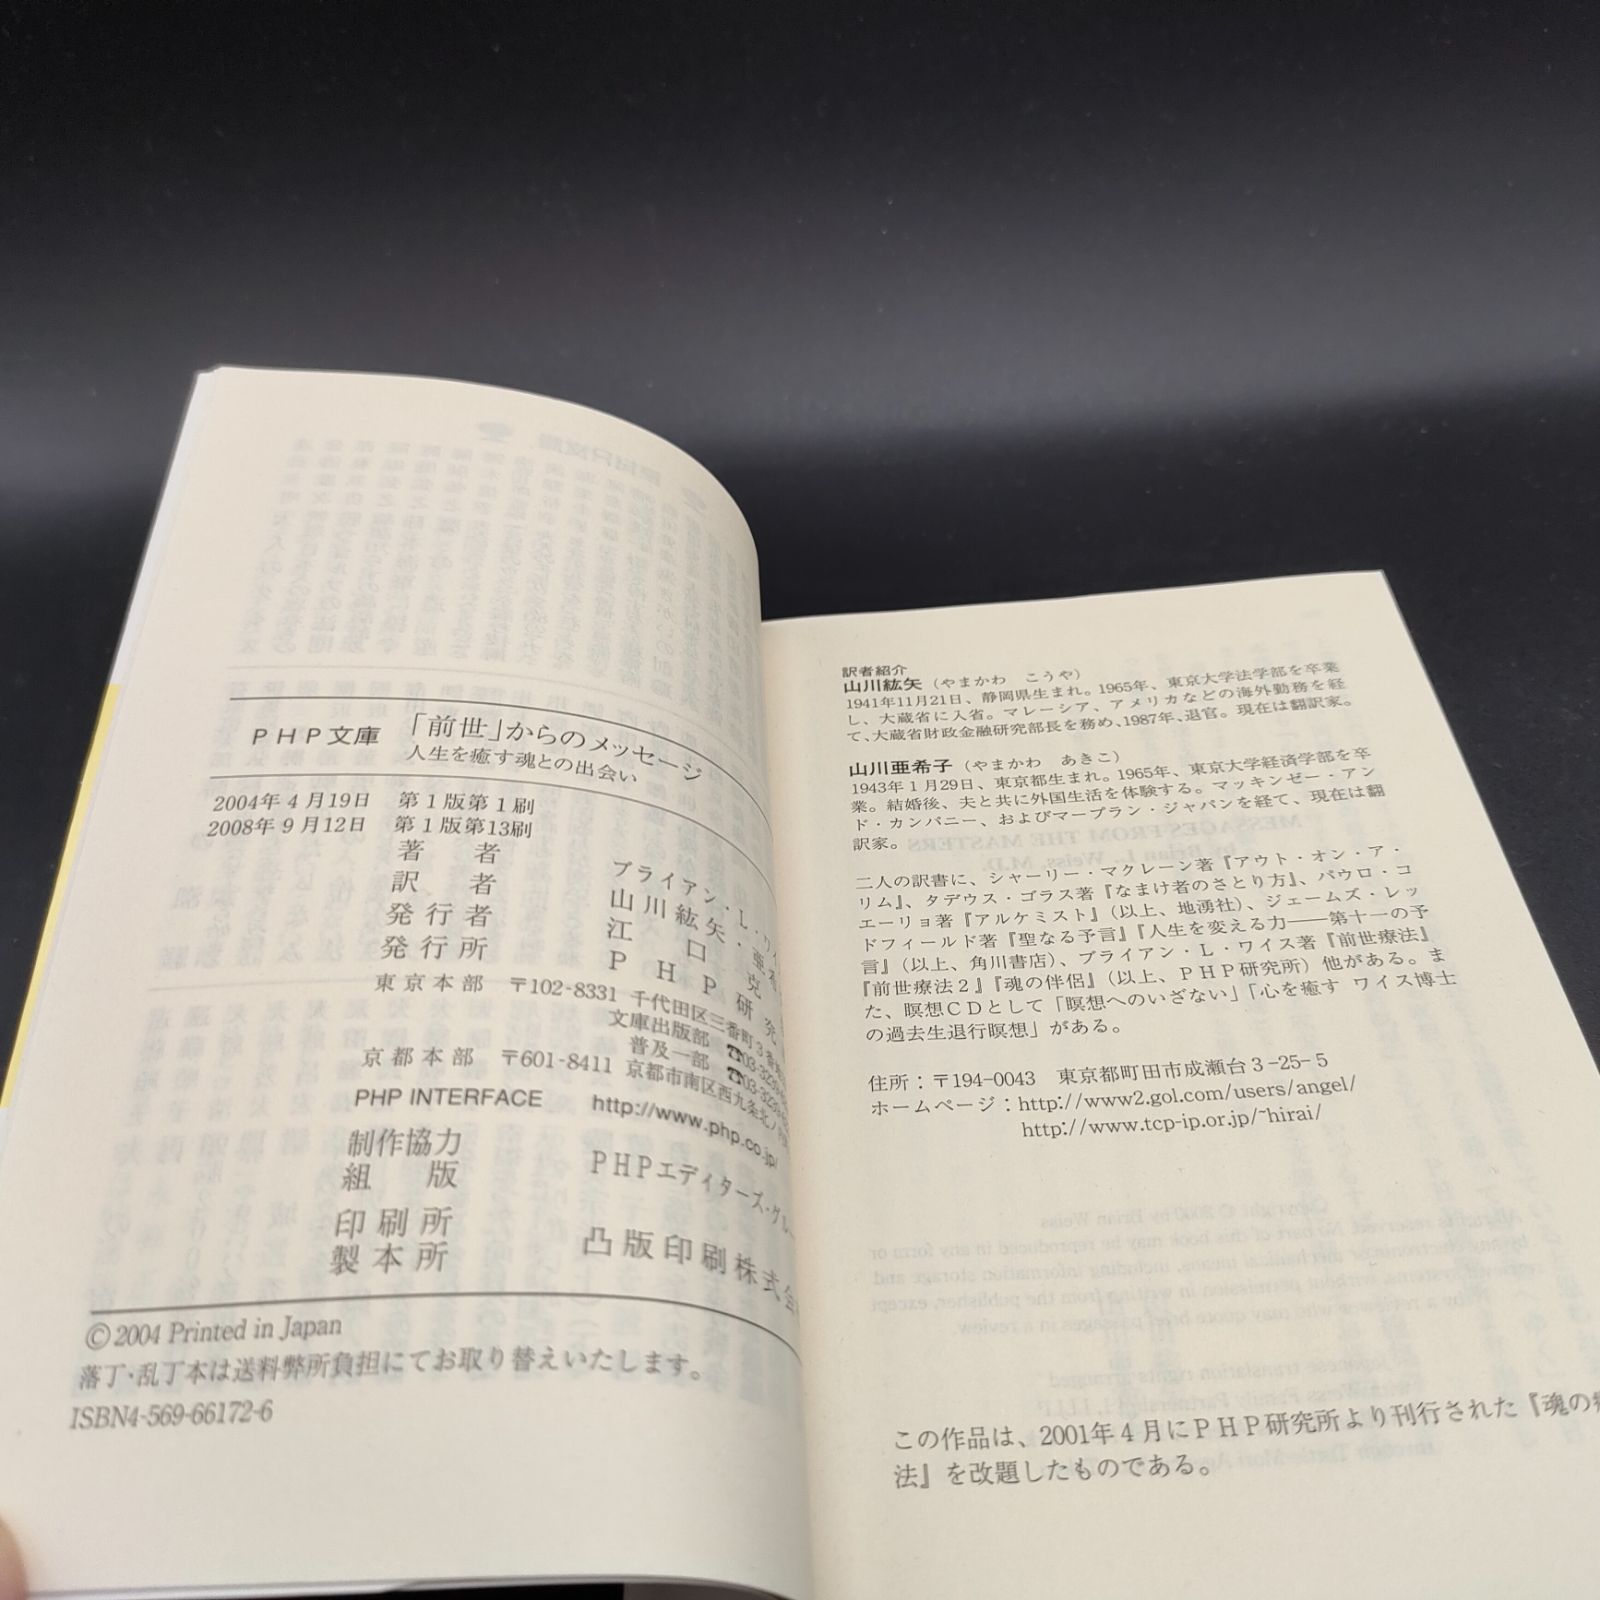 PHP文庫 「前世」からのメッセージ
人生を癒す魂との出会い
2004年4月19日 第1版第1刷
2008年9月12日 第1版第13刷
著者 ブライアン・L・ワイ
訳者 山川紘矢・亜希
発行者 江口克
発行所 PHP研究
東京本部 〒102-8331 千代田区三番町3番
文庫出版部 ☎03-3239
普及一部 ☎03-3239
京都本部 〒601-8411 京都市南区西九条北ノ
PHP INTERFACE http://www.php.co.jp/
制作協力
組版 PHPエディターズ・グル
印刷所
製本所 凸版印刷株式会
©2004 Printed in Japan
落丁・乱丁本は送料弊所負担にてお取り替えいたします。
ISBN4-569-66172-6
訳者紹介
山川紘矢（やまかわ こうや）
1941年11月21日、静岡県生まれ。1965年、東京大学法学部を卒業
し、大蔵省に入省。マレーシア、アメリカなどの海外勤務を経
て、大蔵省財政金融研究部長を務め、1987年、退官。現在は翻訳家。
山川亜希子（やまかわ あきこ）
1943年1月29日、東京都生まれ。1965年、東京大学経済学部を卒
業。結婚後、夫と共に外国生活を体験する。マッキンゼー・アン
ド・カンパニー、およびマープラン・ジャパンを経て、現在は翻
訳家。
二人の訳書に、シャーリー・マクレーン著『アウト・オン・ア・
リム』、タデウス・ゴラス著『なまけ者のさとり方』、パウロ・コ
エーリョ著『アルケミスト』（以上、地湧社）、ジェームズ・レッ
ドフィールド著『聖なる予言』『人生を変える力――第十一の予
言』（以上、角川書店）、ブライアン・L・ワイス著『前世療法』
『前世療法2』『魂の伴侶』（以上、PHP研究所）他がある。ま
た、瞑想CDとして「瞑想へのいざない」「心を癒す ワイス博士
の過去生退行瞑想」がある。
住所：〒194-0043 東京都町田市成瀬台3-25-5
ホームページ：http://www2.gol.com/users/angel/
http://www.tcp-ip.or.jp/~hirai/
この作品は、2001年4月にPHP研究所より刊行された『魂の
法』を改題したものである。